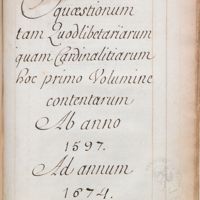 quæstionum
tam Quodlibetariarum
quam Cardinalitiarum
hoc primo Volumine
contentarum
Ab anno
1597.
Ad annum
1674.